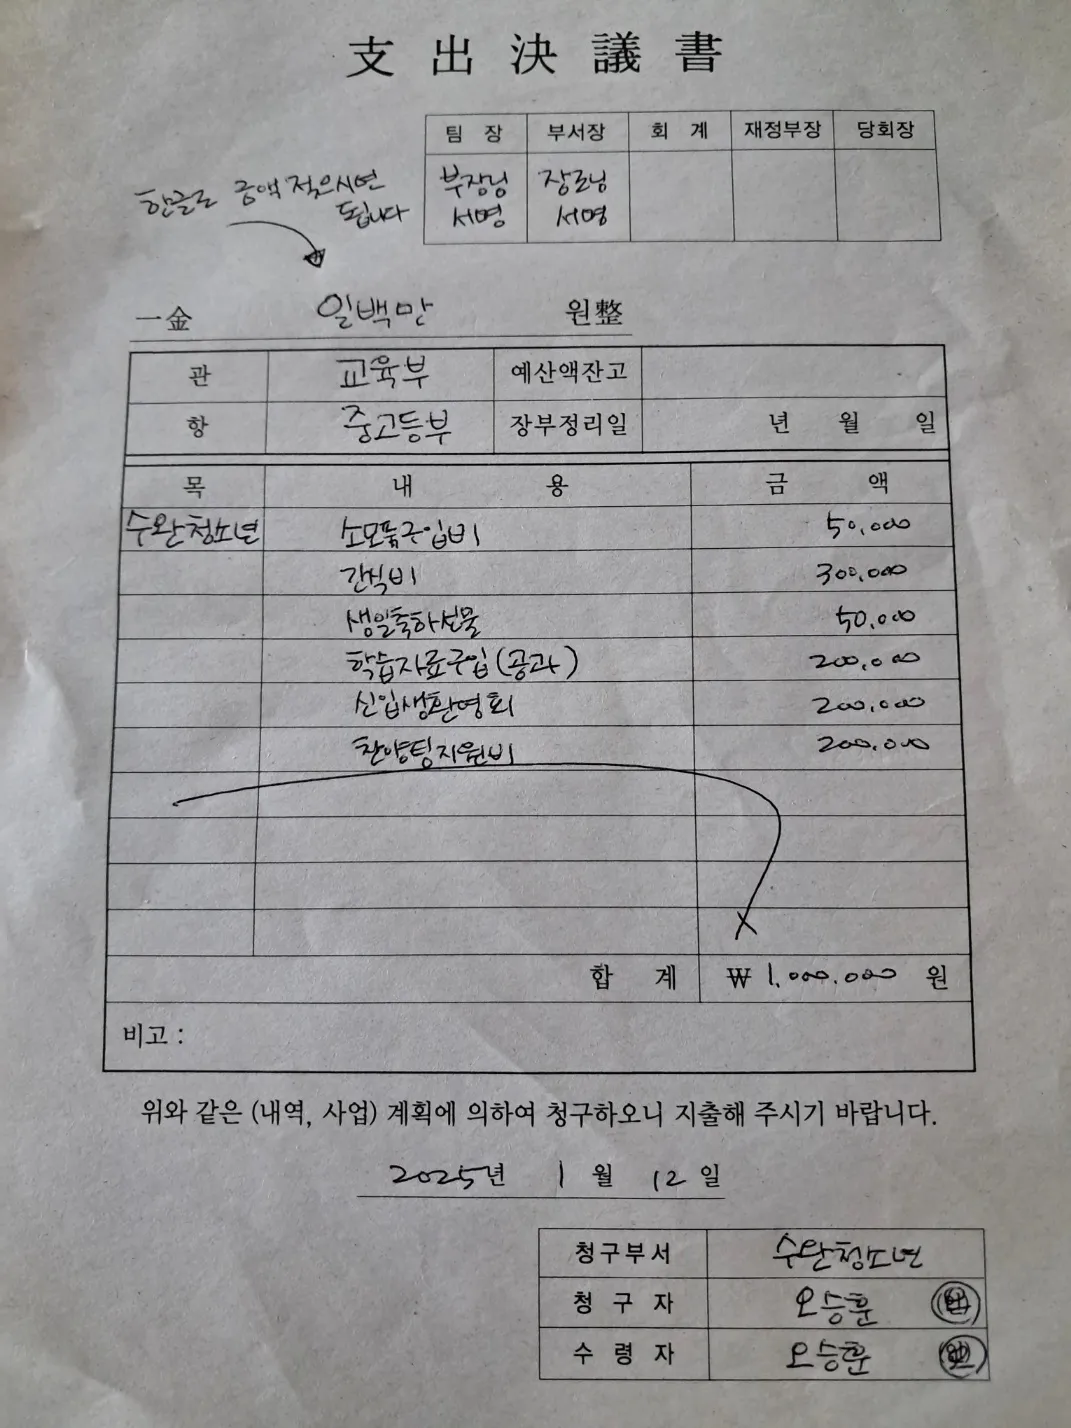 支出決議書
팀 장 부서장 회 계 재정부장 당회장
부장님 장로님
서명 서명
한글로 금액 적으시면
됩니다
一金 일백만 원整
관 교육부 예산액잔고
항 중고등부 장부정리일 년 월 일
목 내 용 금 액
수완청소년 소모품구입비 50,000
간식비 300,000
생일축하선물 50,000
학습자료구입(공과) 200,000
신입생환영회 200,000
찬양팀지원비 200,000
합 계 ₩ 1,000,000 원
비고 :
위와 같은 (내역, 사업) 계획에 의하여 청구하오니 지출해 주시기 바랍니다.
2025년 1 월 12 일
청구부서 수완청소년
청 구 자 오승훈
수 령 자 오승훈